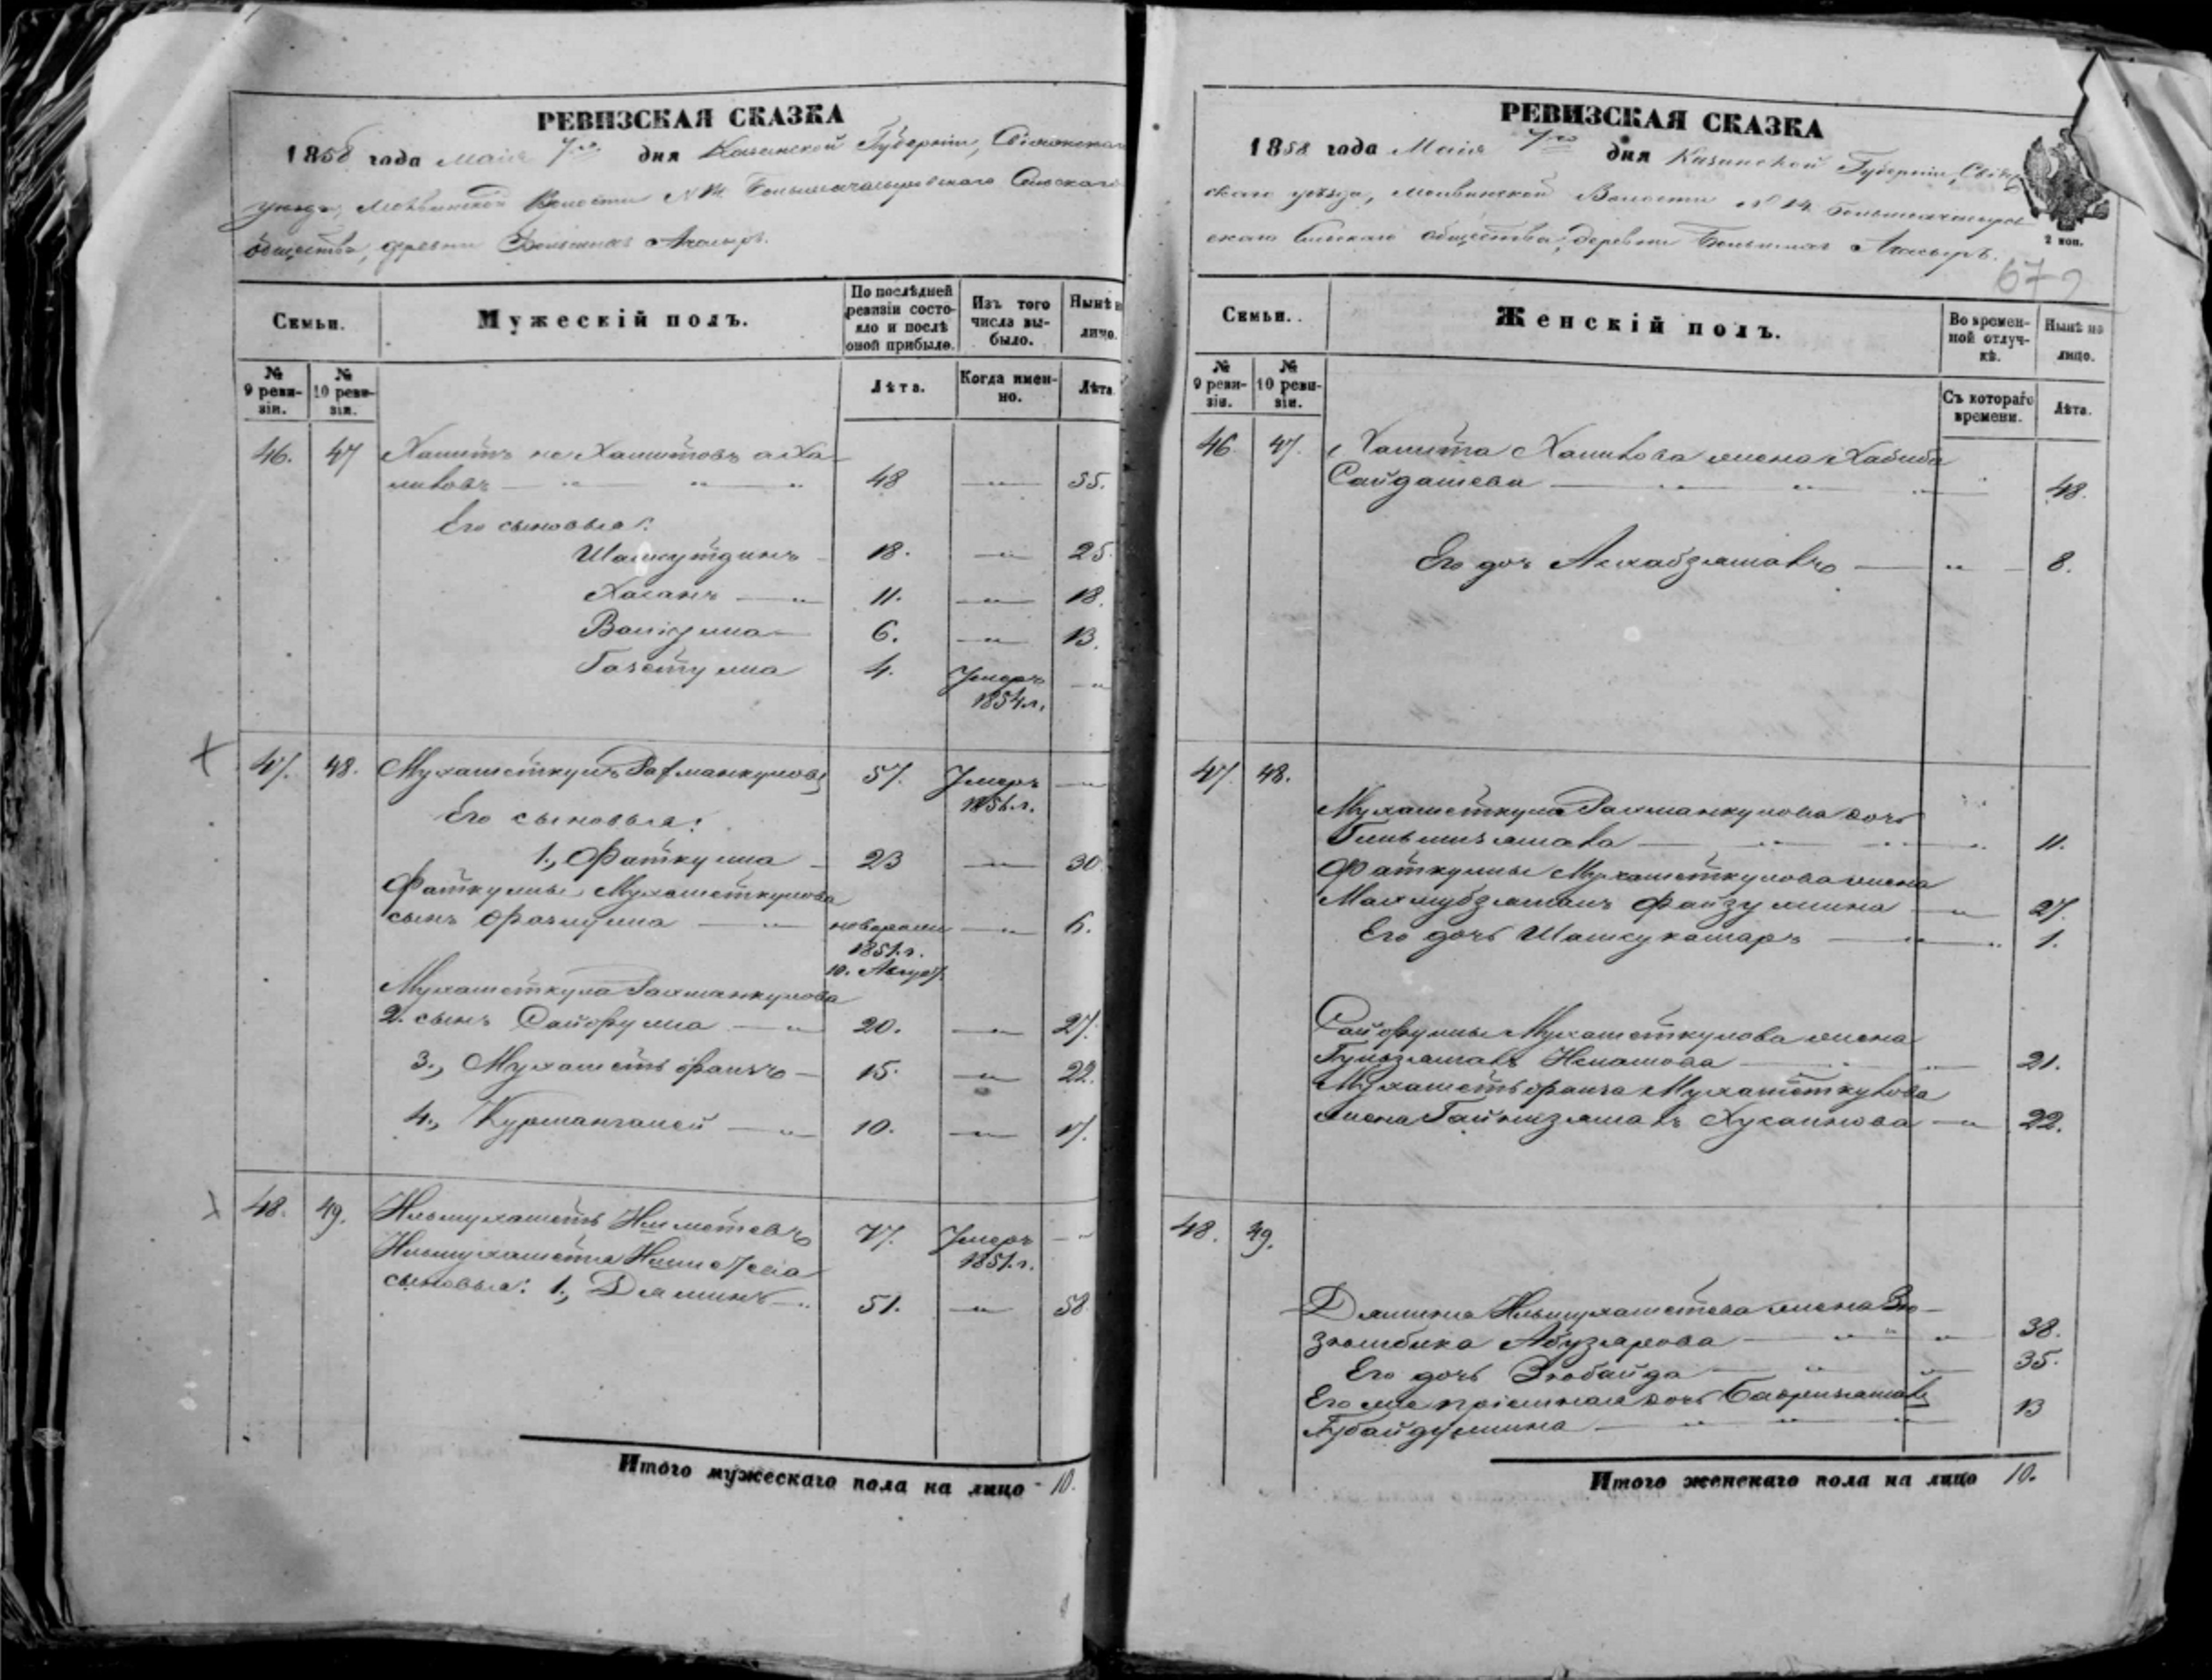 РЕВИЗСКАЯ СКАЗКА
1858 года Маія 7го дня Казанской Губерніи,
уезда, Волости №14. Сельскаго
общества, деревни Большихъ Ачасыръ.
Семьи. Мужескій полъ. По послѣдней ревизіи состояло и послѣ оной прибыло. Изъ того числа выбыло. Нынѣ на лицо.
№ 9 ревизіи. № 10 ревизіи. Лѣта. Когда именно. Лѣта.
46. 47 Хамитъ не Хамитовъ а Ха-
ликовъ 48 55.
Его сыновья:
Шамсутдинъ 18. 25.
Хасанъ 11. 18.
Валиулла 6. 13.
4. Умеръ
1854 г.
47. 48. Мухаметкулъ Рахманкуловъ 57. Умеръ
185 г.
Его сыновья:
1., Фаткулла 23 30
Фаткуллы Мухаметкулова
сынъ новорожд 6.
1851. г.
10. Август.
Мухаметкула Рахманкулова
2. сынъ Сайфулла 20. 27.
3., Мухаметь фаизъ 15. 22.
4., Курмангалей 10. 17.
48. 49. Ильмухаметь 77. Умеръ
1851. г.
Ильмухаметя
сыновья: 1., Дяминъ 51. 58
Итого мужескаго пола на лицо 10.
РЕВИЗСКАЯ СКАЗКА
1858 года Маія 7го дня Казанской Губерніи,
скаго уѣзда, Волости №14
скаго Сельскаго общества, деревни Большихъ Ачасыръ.
2 коп.
67
Семьи. Женскій полъ. Во временной отлучкѣ. Нынѣ на лицо.
№ 9 ревизіи. № 10 ревизіи. Съ котораго времени. Лѣта.
46. 47. Хамита Халикова жена Хабиба
Сайдашева 48.
Его доч 8.
47. 48.
Мухаметкула Рахманкулова дочь
11.
Фаткуллы Мухаметкулова жена
Махмубзямалъ Файзуллина 27.
Его дочь Шамсукамаръ 1.
Сайфуллы Мухаметкулова жена
21.
Мухаметьфаиза Мухаметкулова
жена Хусаинова 22.
48. 49.
Дямина Ильмухаметева жена
Абузярова 38.
Его дочь Зюбайда 35.
Его же пріемная дочь
Губайдуллина 13
Итого женскаго пола на лицо 10.